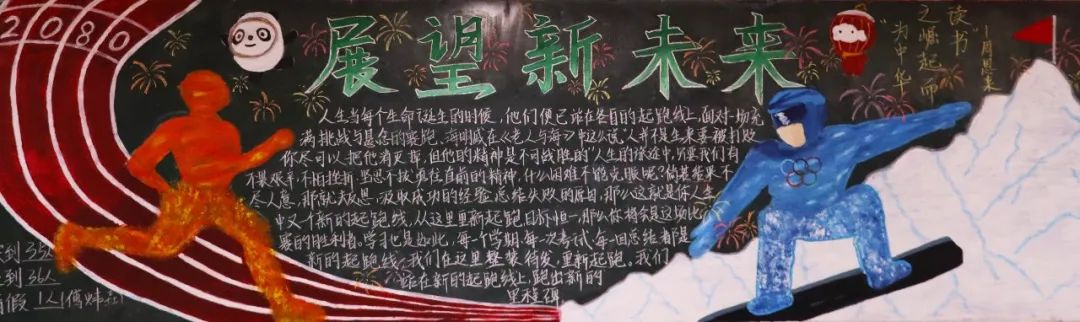 2080
展望新未来
"为中华
之崛起而
读书"
周恩来
人生当每个生命诞生的时候，他们便已站在各自的起跑线上，面对一场充
满挑战与悬念的赛跑。海明威在《老人与海》中这么说"人并不是生来要被打败
你尽可以把他消灭掉，但他的精神是不可战胜的"人生的徐途中，只要我们有
不畏艰辛，不怕挫折，坚忍不拔勇往直前的精神，什么困难不能克服呢？倘若结果不
尽人意，那就去反思，汲取成功的经验，总结失败的原因，那么这就是你人生
中又个新的起跑线，从这里重新起跑，目标恒一，那么你将会是这场比
赛的胜利者。学习也是如此，每一个学期，每一次考试，每一回总结者都是
新的起跑线，我们在这里整装待发，重新起跑。我们
站在新的起跑线上，跑出新的
里程碑
到35人
到36人
假 1人